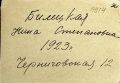 1974
Билецкая
Нина Степановна
1923 г
Черниговская 12